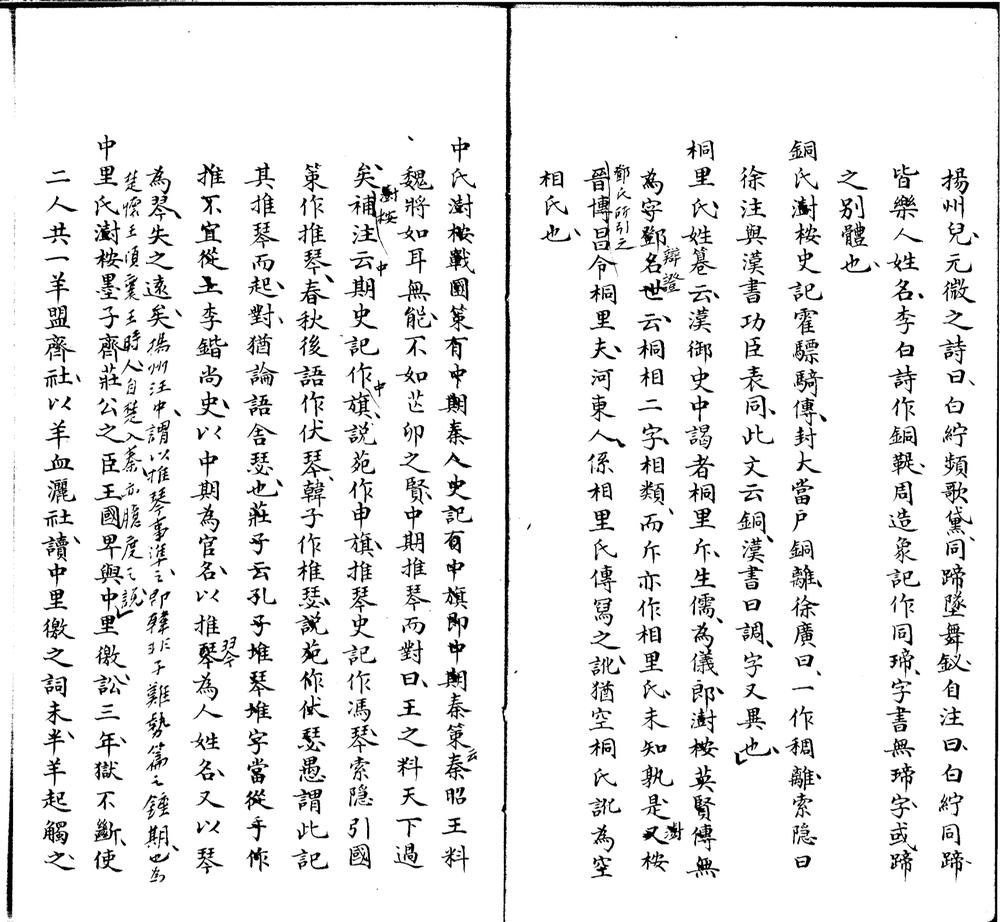 揚州兒元微之詩曰白紵頻歌黛同蹄墜舞釵自注曰白紵同蹄
皆樂人姓名李白詩作銅鞮周造象記作同㻛字書無㻛字或蹄
之別體也
銅氏澍桉史記霍驃騎傳封大當户銅離徐廣曰一作稠離索隐曰
徐注與漢書功臣表同此文云銅漢書曰調字又異也
桐里氏姓纂云漢御史中謁者桐里斥生儒為儀郎澍桉英賢傳無
為字鄧名世辯證云桐相二字相類而斥亦作相里氏未知孰是又澍桉
鄧氏所引之
晉博昌令桐里夫河東人係相里氏傳寫之訛猶空桐氏訛為空
相氏也
中氏澍桉戰國策有中期秦人史記有中旗即中期秦策云秦昭王料
魏將如耳無能不如芒卯之賢中期推琴而對曰王之料天下過
矣澍桉補注云中期史記作中旗說苑作申旗推琴史記作馮琴索隐引國
策作推琴春秋後語作伏琴韓子作椎瑟說苑作伏瑟愚謂此記
其推琴而起對猶論語舍瑟也莊子云孔子推琴堆字當從手作
推不宜從土李鍇尚史以中期為官名以推琴為人姓名又以琴
為琴失之遠矣揚州汪中謂以推琴事準之即韓非子難勢篇之鍾期也為
楚懷王頃襄王時人自楚入秦亦臆度之說
中里氏澍桉墨子齊莊公之臣王國卑與中里徼訟三年獄不斷使
二人共一羊盟齊社以羊血灑社讀中里徼之詞未半羊起觸之